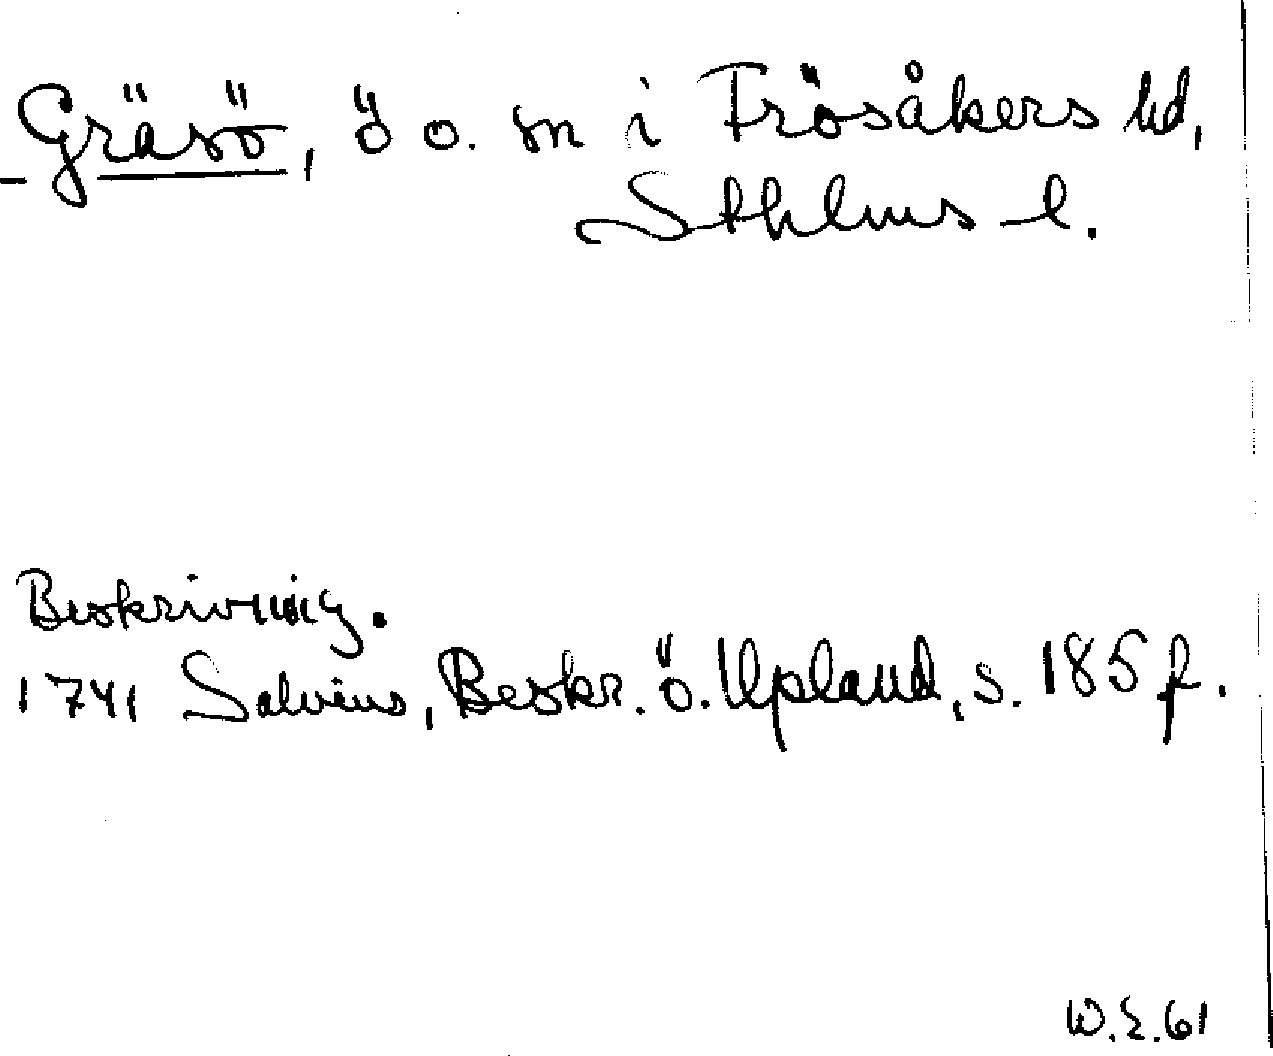 Gräsö, ö o. sn i Frösåkers hd,
Sthlms l.
Beskrivning.
1741 Salvius, Beskr. ö. Upland, s. 185 f.
W.E.61